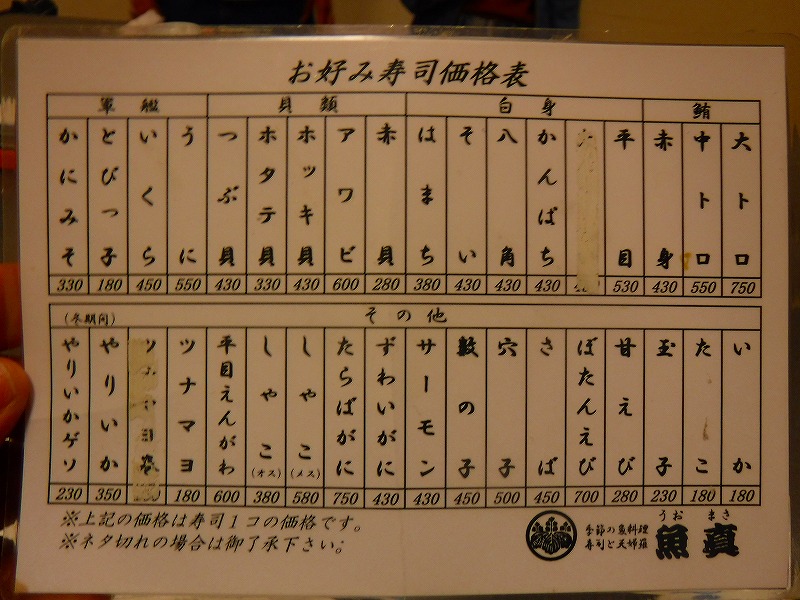 お好み寿司価格表
鮪
大トロ 750
中トロ 550
赤身 430
白身
平目 530
かんばち 430
八角 430
そい 430
はまち 380
貝類
赤貝 280
アワビ 600
ホッキ貝 430
ホタテ貝 330
つぶ貝 430
軍艦
うに 550
いくら 450
とびっ子 180
かにみそ 330
その他
いか 180
たこ 180
玉子 230
甘えび 280
ぼたんえび 700
さば 450
穴子 500
数の子 450
サーモン 430
ずわいがに 430
たらばがに 750
しゃこ(メス) 580
しゃこ(オス) 380
平目えんがわ 600
ツナマヨ 180
(冬期間)
やりいか 350
やりいかゲソ 230
※上記の価格は寿司1コの価格です。
※ネタ切れの場合は御了承下さい。
季節の魚料理
寿司と天婦羅
うお まさ
魚真